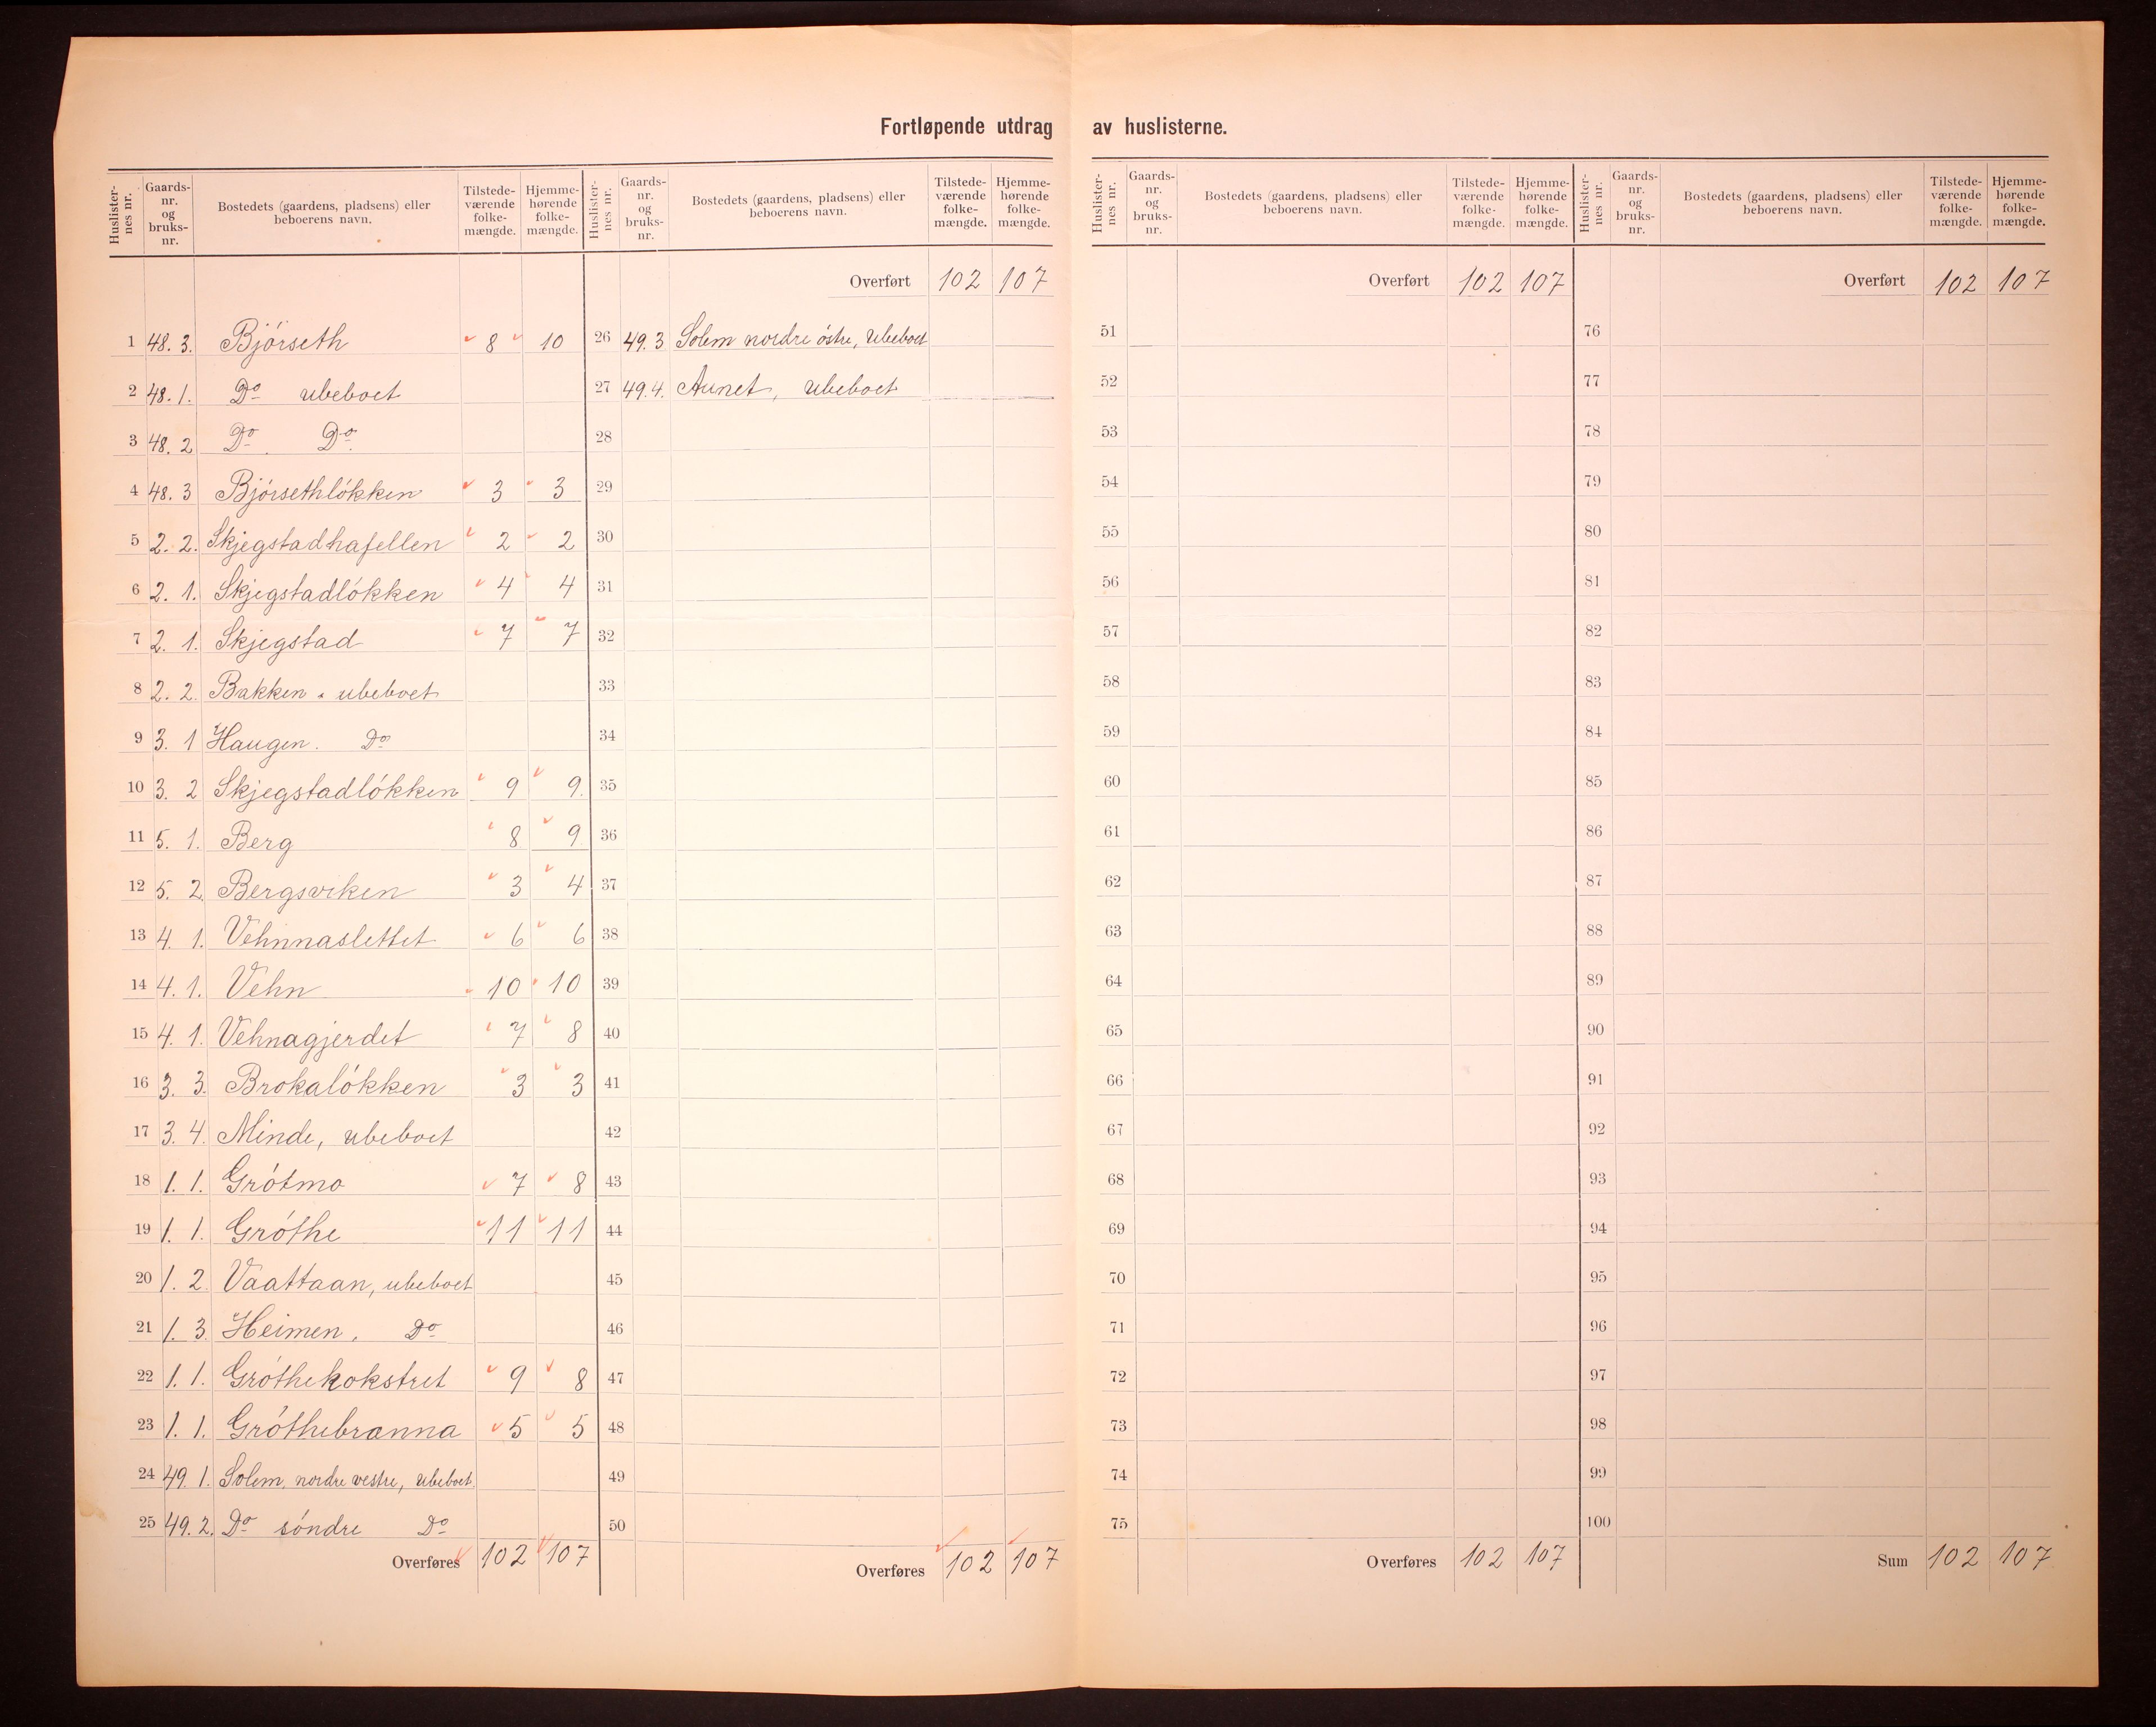 Fortløpende utdrag av huslisterne.
Huslister-nes nr. | Gaards-nr. og bruks-nr. | Bostedets (gaardens, pladsens) eller beboerens navn. | Tilstede-værende folke-mængde. | Hjemme-hørende folke-mængde.
1 48. 3. Bjórseth 8 10
2 48. 1. Do ubeboet
3 48. 2 Do Do
4 48. 3 Bjórsethlókken 3 3
5 2. 2. Skjegstadhafellen 2 2
6 2. 1. Skjegstadlókken 4 4
7 2. 1. Skjegstad 7 7
8 2. 2. Bakken. ubeboet
9 3. 1 Haugen. Do
10 3. 2 Skjegstadlókken 9 9.
11 5. 1. Berg 8 9
12 5. 2 Bergsviken 3 4
13 4. 1. Vehnnaslettet 6 6
14 4. 1. Vehn 10 10
15 4. 1. Vehnagjerdet 7 8
16 3. 3. Brokalókken 3 3
17 3. 4. Minde, ubeboet
18 1. 1. Grótmo 7 8
19 1. 1. Gróthe 11 11
20 1. 2. Vaattaan, ubeboet
21 1. 3. Heimen. Do
22 1. 1. Gróthekokstret 9 8
23 1. 1. Gróthebrænna 5 5
24 49. 1. Solem, nordre vestre, ubeboet
25 49. 2. Do sóndre Do
Overføres 102 107
Huslister-nes nr. | Gaards-nr. og bruks-nr. | Bostedets (gaardens, pladsens) eller beboerens navn. | Tilstede-værende folke-mængde. | Hjemme-hørende folke-mængde.
Overført 102 107
26 49. 3 Solem nordre óstre, ubeboet
27 49. 4. Aunet, ubeboet
28
29
30
31
32
33
34
35
36
37
38
39
40
41
42
43
44
45
46
47
48
49
50
Overføres 102 107
Huslister-nes nr. | Gaards-nr. og bruks-nr. | Bostedets (gaardens, pladsens) eller beboerens navn. | Tilstede-værende folke-mængde. | Hjemme-hørende folke-mængde.
Overført 102 107
51
52
53
54
55
56
57
58
59
60
61
62
63
64
65
66
67
68
69
70
71
72
73
74
75
Overføres 102 107
Huslister-nes nr. | Gaards-nr. og bruks-nr. | Bostedets (gaardens, pladsens) eller beboerens navn. | Tilstede-værende folke-mængde. | Hjemme-hørende folke-mængde.
Overført 102 107
76
77
78
79
80
81
82
83
84
85
86
87
88
89
90
91
92
93
94
95
96
97
98
99
100
Sum 102 107